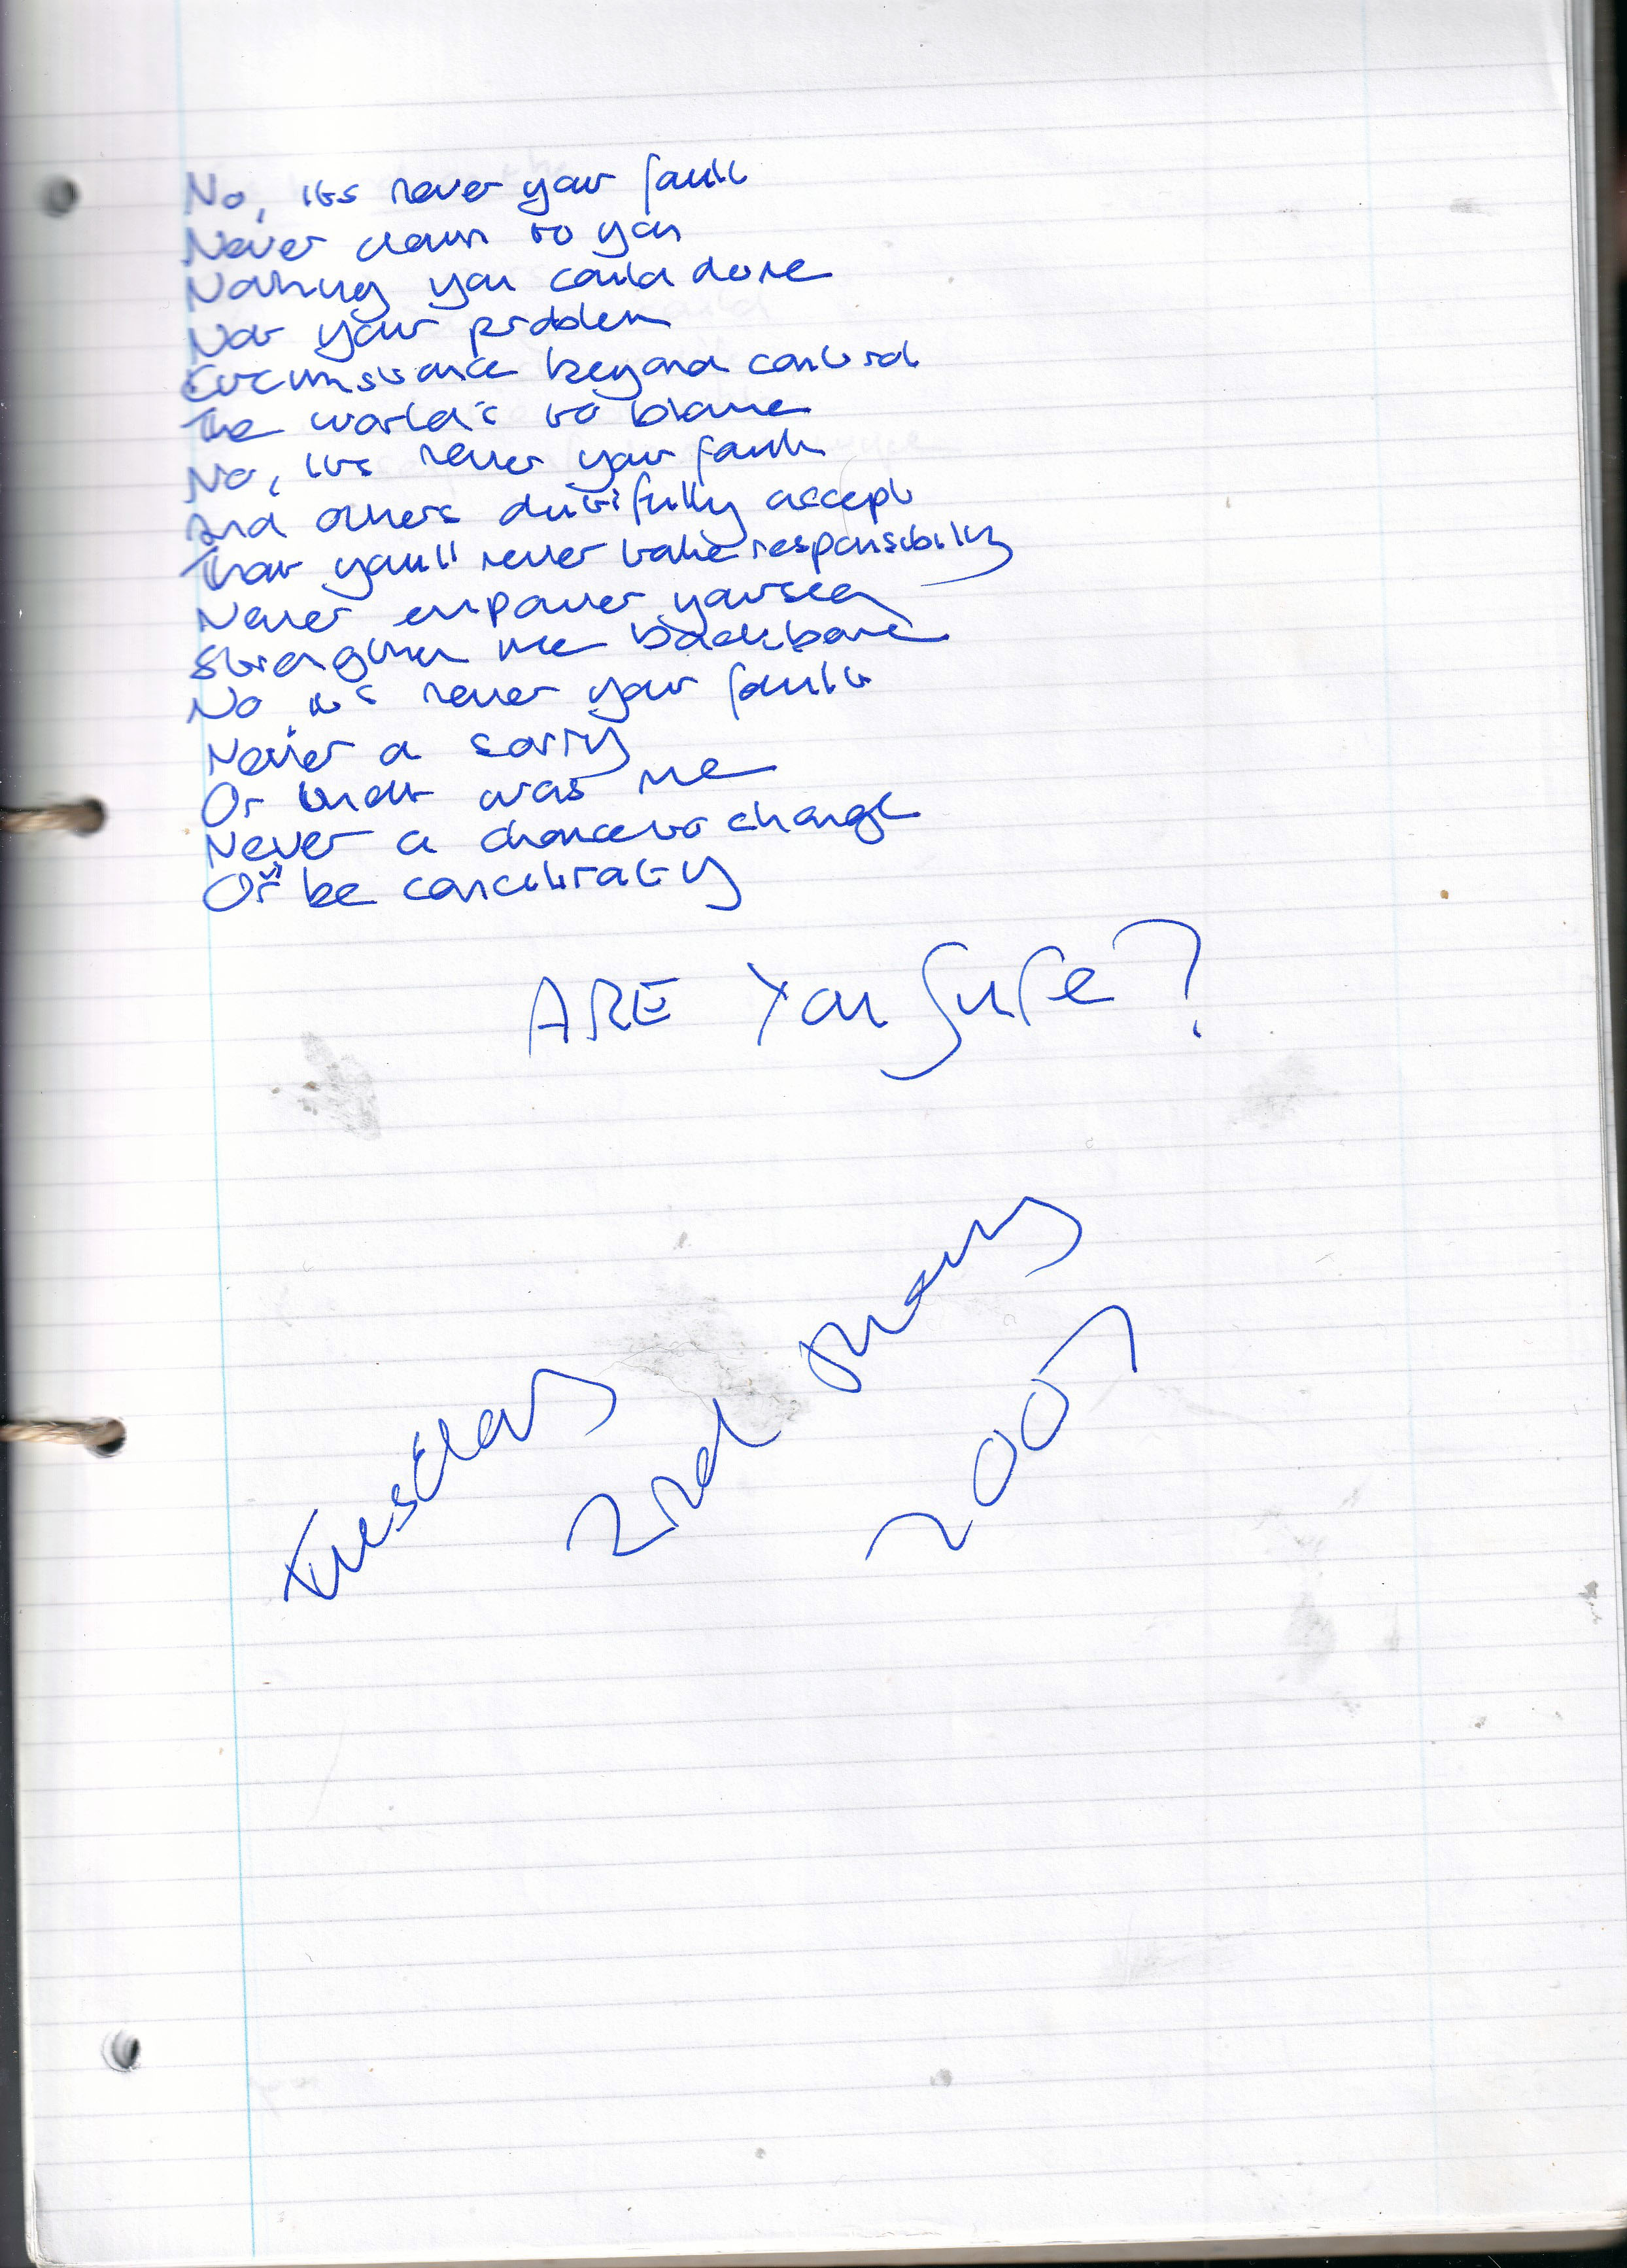 No, its never your fault
Never down to you
Nothing you could done
Not your problem
Circumstance beyond control
The world's to blame
No, its never your fault
And others dutifully accept
That you'll never take responsibility
Never empower yourself
Strengthen the backbone
No, it's never your fault
Never a sorry
Or that was me
Never a chance to change
Or be
ARE You Sure?
Tuesday
2nd January
2007